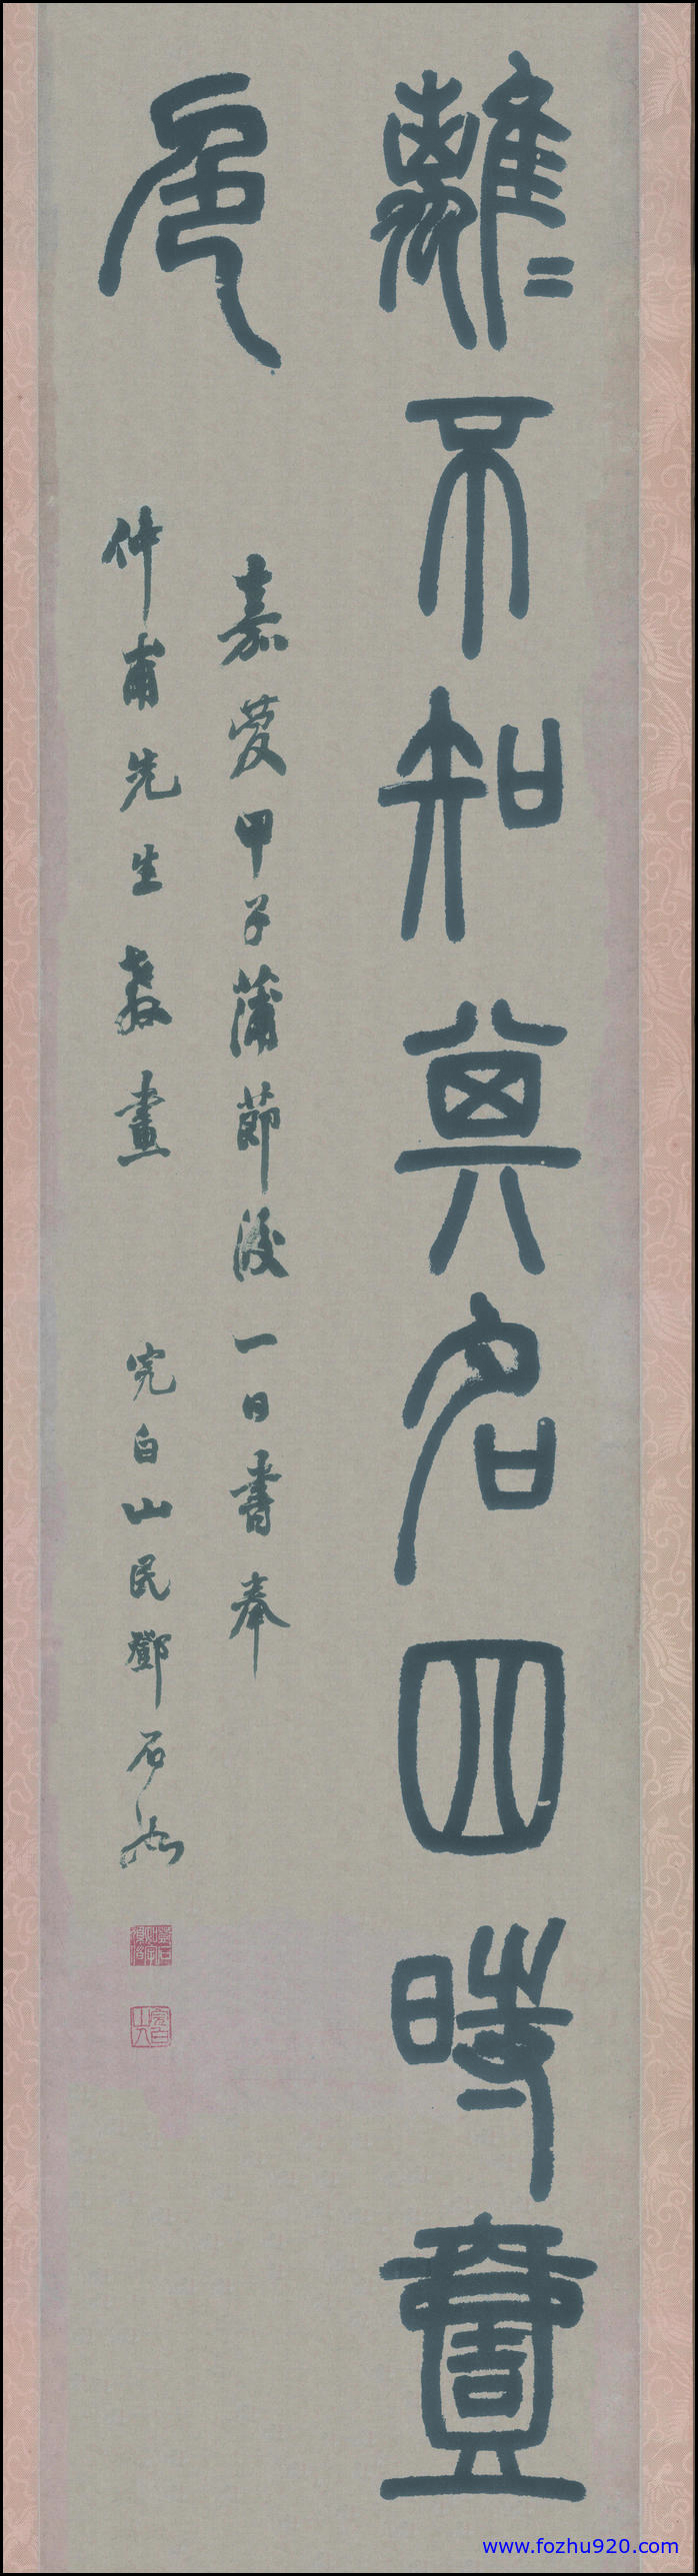 離〻不知其名四時壹
色
嘉慶甲子蒲節後一日書奉
仲甫先生教畫 完白山民鄧石如
www.fozhu920.com